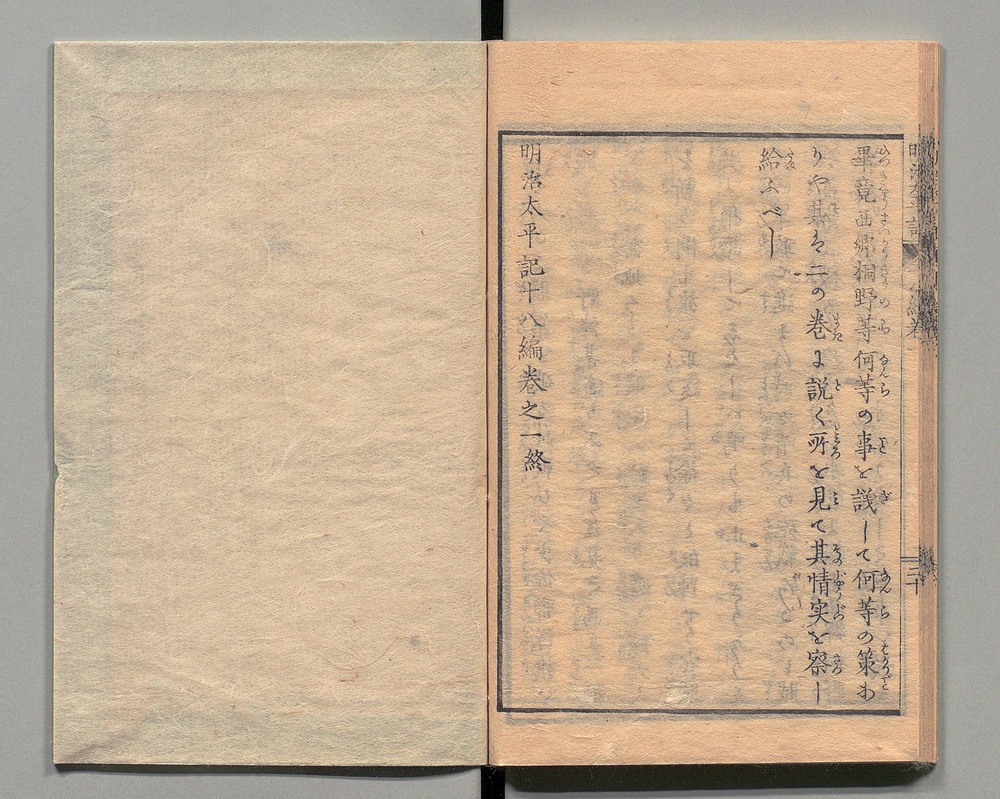 畢竟西郷桐野等何等の事を議して何等の策あ
りや其は二の巻に説く所を見て其情実を察し
給ふべし
明治太平記十八編巻之一終
明治太平記
二十